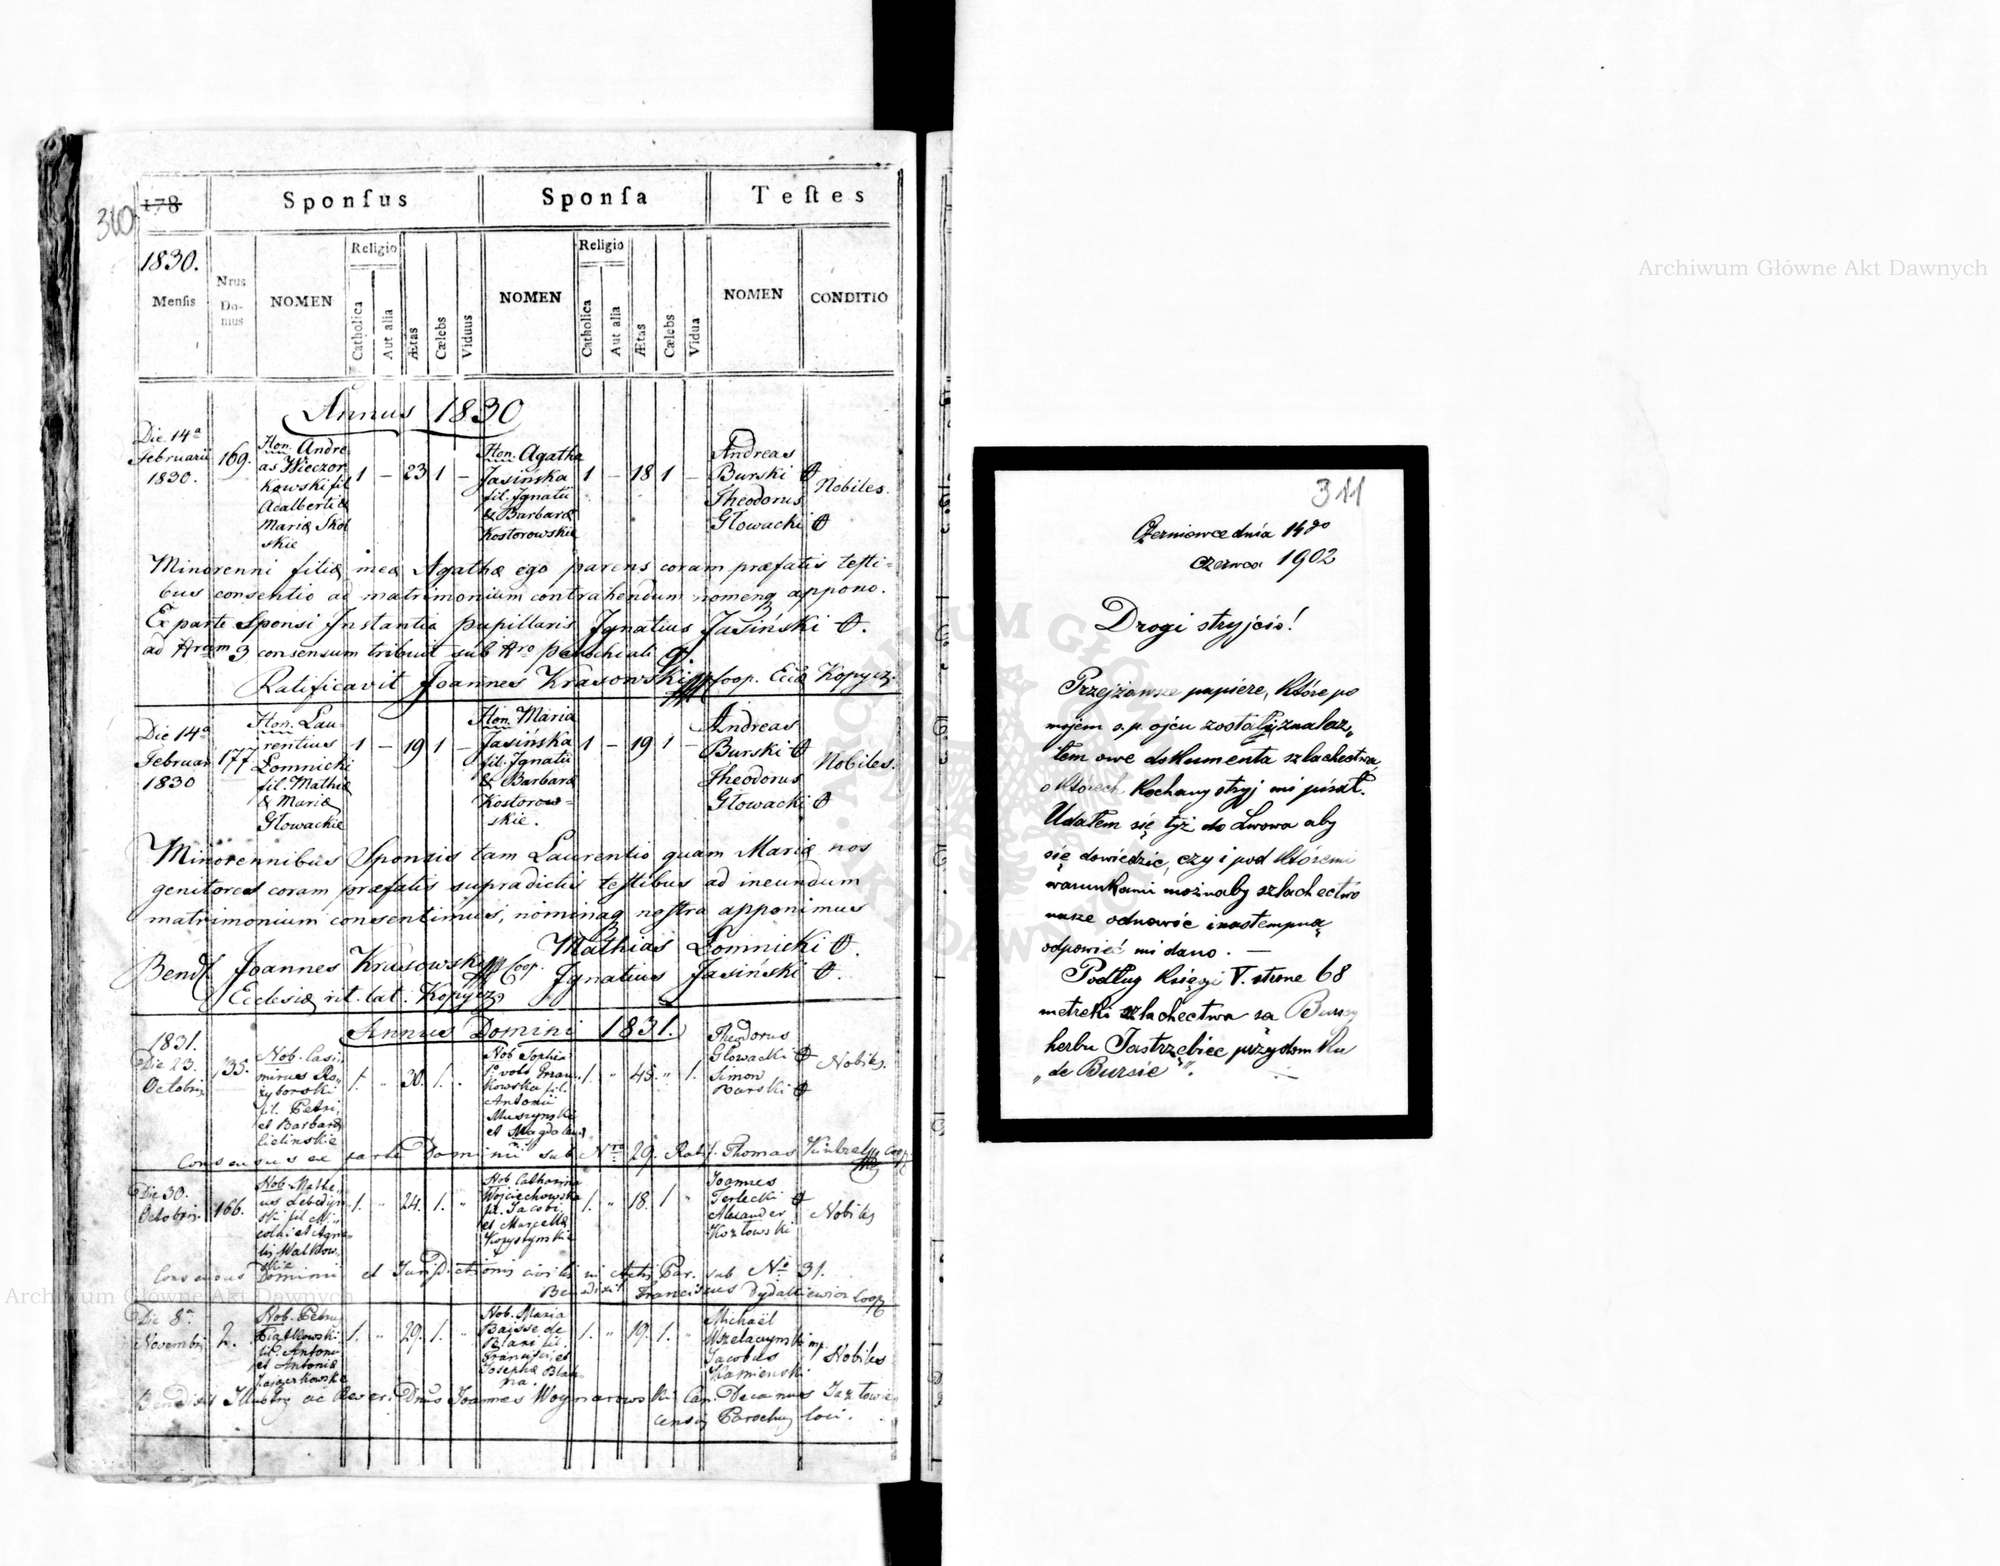 310
178
Sponſus
Sponſa
Teſtes
1830.
Menſis
Nrus Do-mus
NOMEN
Religio
Catholica
Aut alia
Ætas
Cælebs
Viduus
NOMEN
Religio
Catholica
Aut alia
Ætas
Cælebs
Vidua
NOMEN
CONDITIO
Annus 1830
Die 14ª
Februarii
1830.
169.
Hon. Andre
as Wieczor
kowski fil
Adalberti &
Mariæ Skol
skie
1 – 23 1 –
Hon. Agatha
Jasińska
fil. Ignatii
& Barbaræ
Kostorowskie
1 – 18 1 –
Andreas
Burski
Theodorus
Głowacki
Nobiles.
Minorenni filiæ meæ Agathæ ego parens coram præfatis teſti-
bus consentio ad matrimonium contrahendum nomenq appono.
Ex parte Sponsi Instantia pupillaris Ignatius Jasiński
ad Nrum 3 consensum tribuit sub Nro parochiali 9
Ratificavit Joannes Krasowski Coop. Eccæ Kopycz.
Die 14ª
Februar
1830
177
Hon. Lau
rentius
Łomnicki
fil. Mathiæ
& Mariæ
Głowackie
1 – 19 1 –
Hon. Maria
Jasińska
fil. Ignatii
& Barbaræ
Kostorow=
skie.
1 – 19 1 –
Andreas
Burski
Theodorus
Głowacki
Nobiles.
Minorennibus Sponsis tam Laurentio quam Mariæ nos
genitores coram præfatis supradictis teſtibus ad ineundum
matrimonium consentimus, nominaq noſtra apponimus
Mathias Łomnicki
Bend. Joannes Krasowski Coop. Ignatius Jasiński
Ecclesiæ rit. lat. Kopycz.
Annus Domini 1831.
1831.
Die 23.
Octobris
135.
Nob. Casi,
mirus Ro,,
zyborski
fil. Petri,
et Barbaræ
Cielinskie
1. 30. 1. „
Nob Sophia
1º voto
kowska fil.
Antonii
Muszynski
et Magdalenæ
1. „ 45. „ 1.
Theodorus
Głowacki
Simon
Burski
Nobiles.
Consensus ex parte Dominii sub Nro 29. Ratif. Thomas Coop.
Die 30.
Octobris
166.
Nob. Mathe,,
us Lebedyn
ski fil. Ni
colai et Agne
tis Walkow,,
skie
1. „ 24. 1. „
Nob. Catharina
Wojciechowska
fil. Jacobi
et Marcellæ
Kopystynskie
1. „ 18. 1 „
Joannes
Terlecki
Alexander
Kozłowski
Nobiles
Consensus Dominii et Jurisdictionis civilis in Actis Par. sub No 31.
Benedixit Franciscus Dydatkiewicz Coop
Die 8ª
Novembris
2.
Nob. Petrus
Piątkowski
fil. Antonii
et Antoniæ
1. „ 29. 1. „
Nob. Maria
Baisse de
Blani fil.
Francisci et
Josephæ
1. „ 19. 1. „
Michaël
Jacobus
Kamienski
mp.
Nobiles
Benedixit Illustris ac Rever. Dnus Joannes Woynarowski Can. Decanus Jazłowie,,
censis Parochus loci.
311
Czerniowce dnia 14go
czerwca 1902
Drogi stryjciu!
Przejżawsze papiere, które po
mojem ś. p. ojcu zostały, znalaz„
łem owe dokumenta szlachectwa,
o ktòrech kochany stryj mi písał.
Udałem się tyż do Lwowa aby
się dowiedzie, czy i pod któremi
warunkami możnaby szlachectwo
nasze odnowić i nastempną
odpowieć mi dano. —
Podług księgi V. strone 68
metreki szlachectwa sa Burscy
herbu Jastrzębiec przydomku
„de Bursie“.
Archiwum Główne Akt Dawnych
Archiwum Główne Akt Dawnych
ARCHIWUM GŁÓWNE AKT DAWNYCH